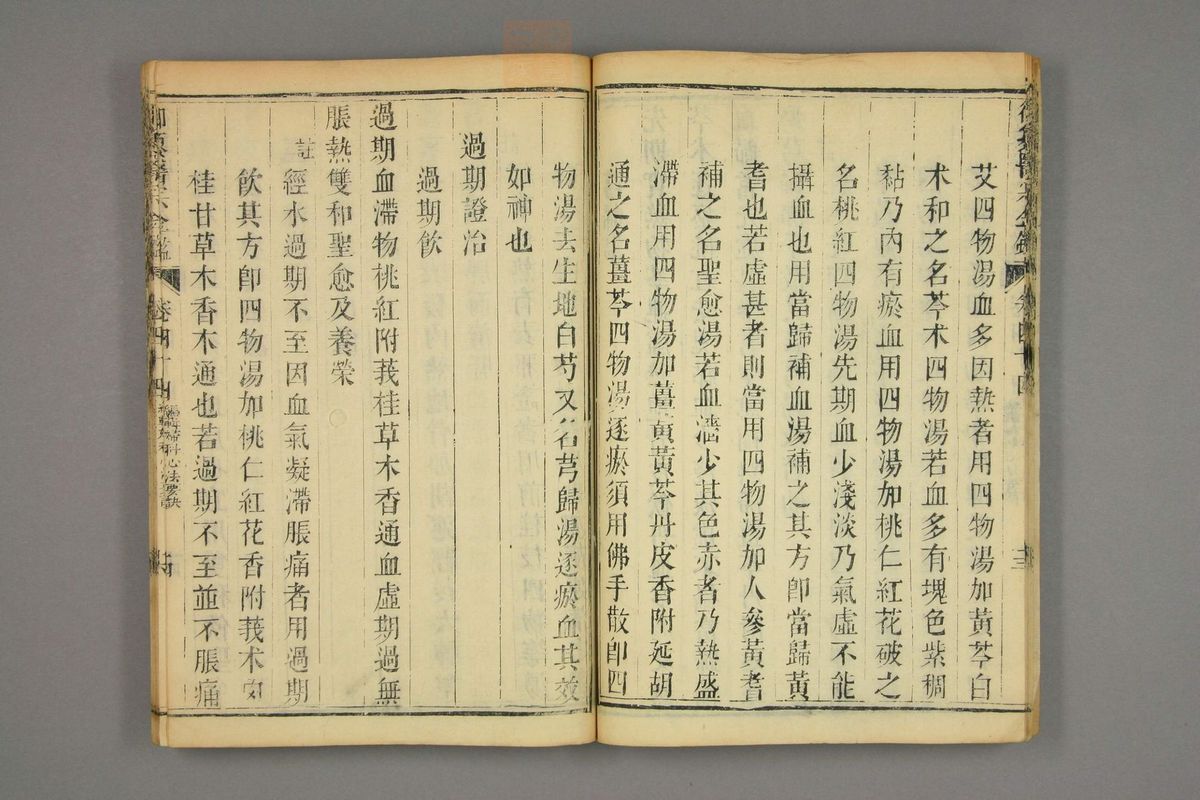 艾四物湯血多因熱者用四物湯加黃芩白
术和之名芩术四物湯若血多有塊色紫稠
黏乃內有瘀血用四物湯加桃仁紅花破之
名桃紅四物湯先期血少淺淡乃氣虛不能
攝血也用當歸補血湯補之其方卽當歸黃
耆也若虛甚者則當用四物湯加人參黃耆
補之名聖愈湯若血濇少其色赤者乃熱盛
滯血用四物湯加薑黃黃芩丹皮香附延胡
通之名薑芩四物湯逐瘀須用佛手散卽四
物湯去生地白芍又名芎歸湯逐瘀血其效
如神也
過期證治
過期飲
過期血滯物桃紅附莪桂草木香通血虛期過無
脹熱雙和聖愈及養榮
註經水過期不至因血氣凝滯脹痛者用過期
飲其方卽四物湯加桃仁紅花香附莪术肉
桂甘草木香木通也若過期不至並不脹痛
御纂醫宗金鑑
卷四十四
編輯婦科心法要訣